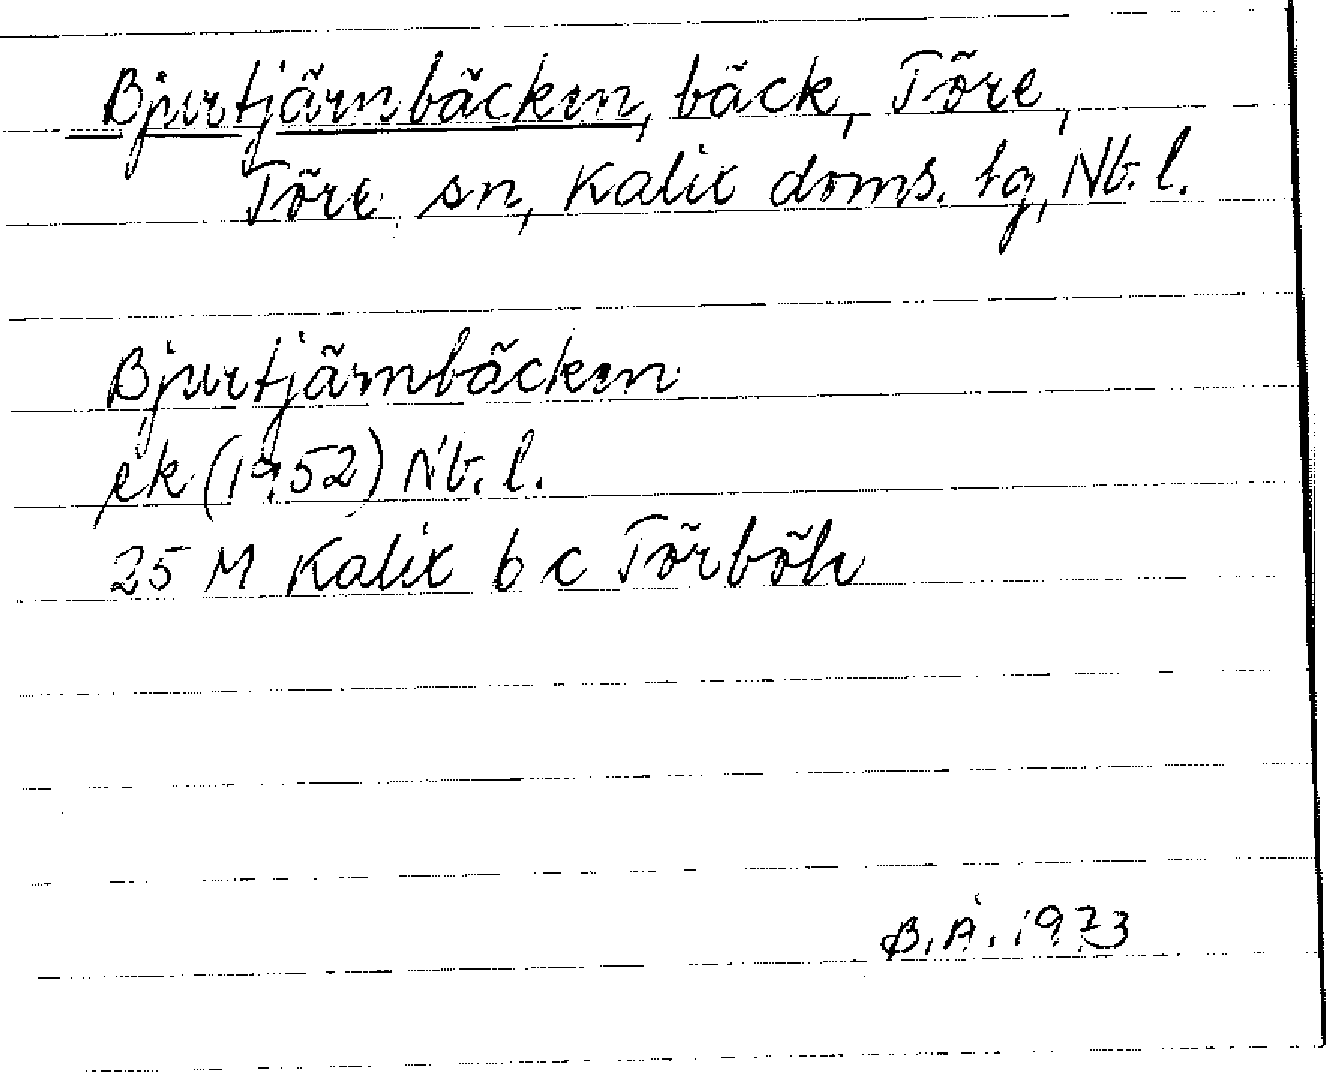 Bjurtjärnbäcken, bäck, Töre,
Töre sn, Kalix doms. tg, Nb. l.
Bjurtjärnbäcken
ek (1952) Nb. l.
25 M Kalix b c Törböle
B.Å. 1973